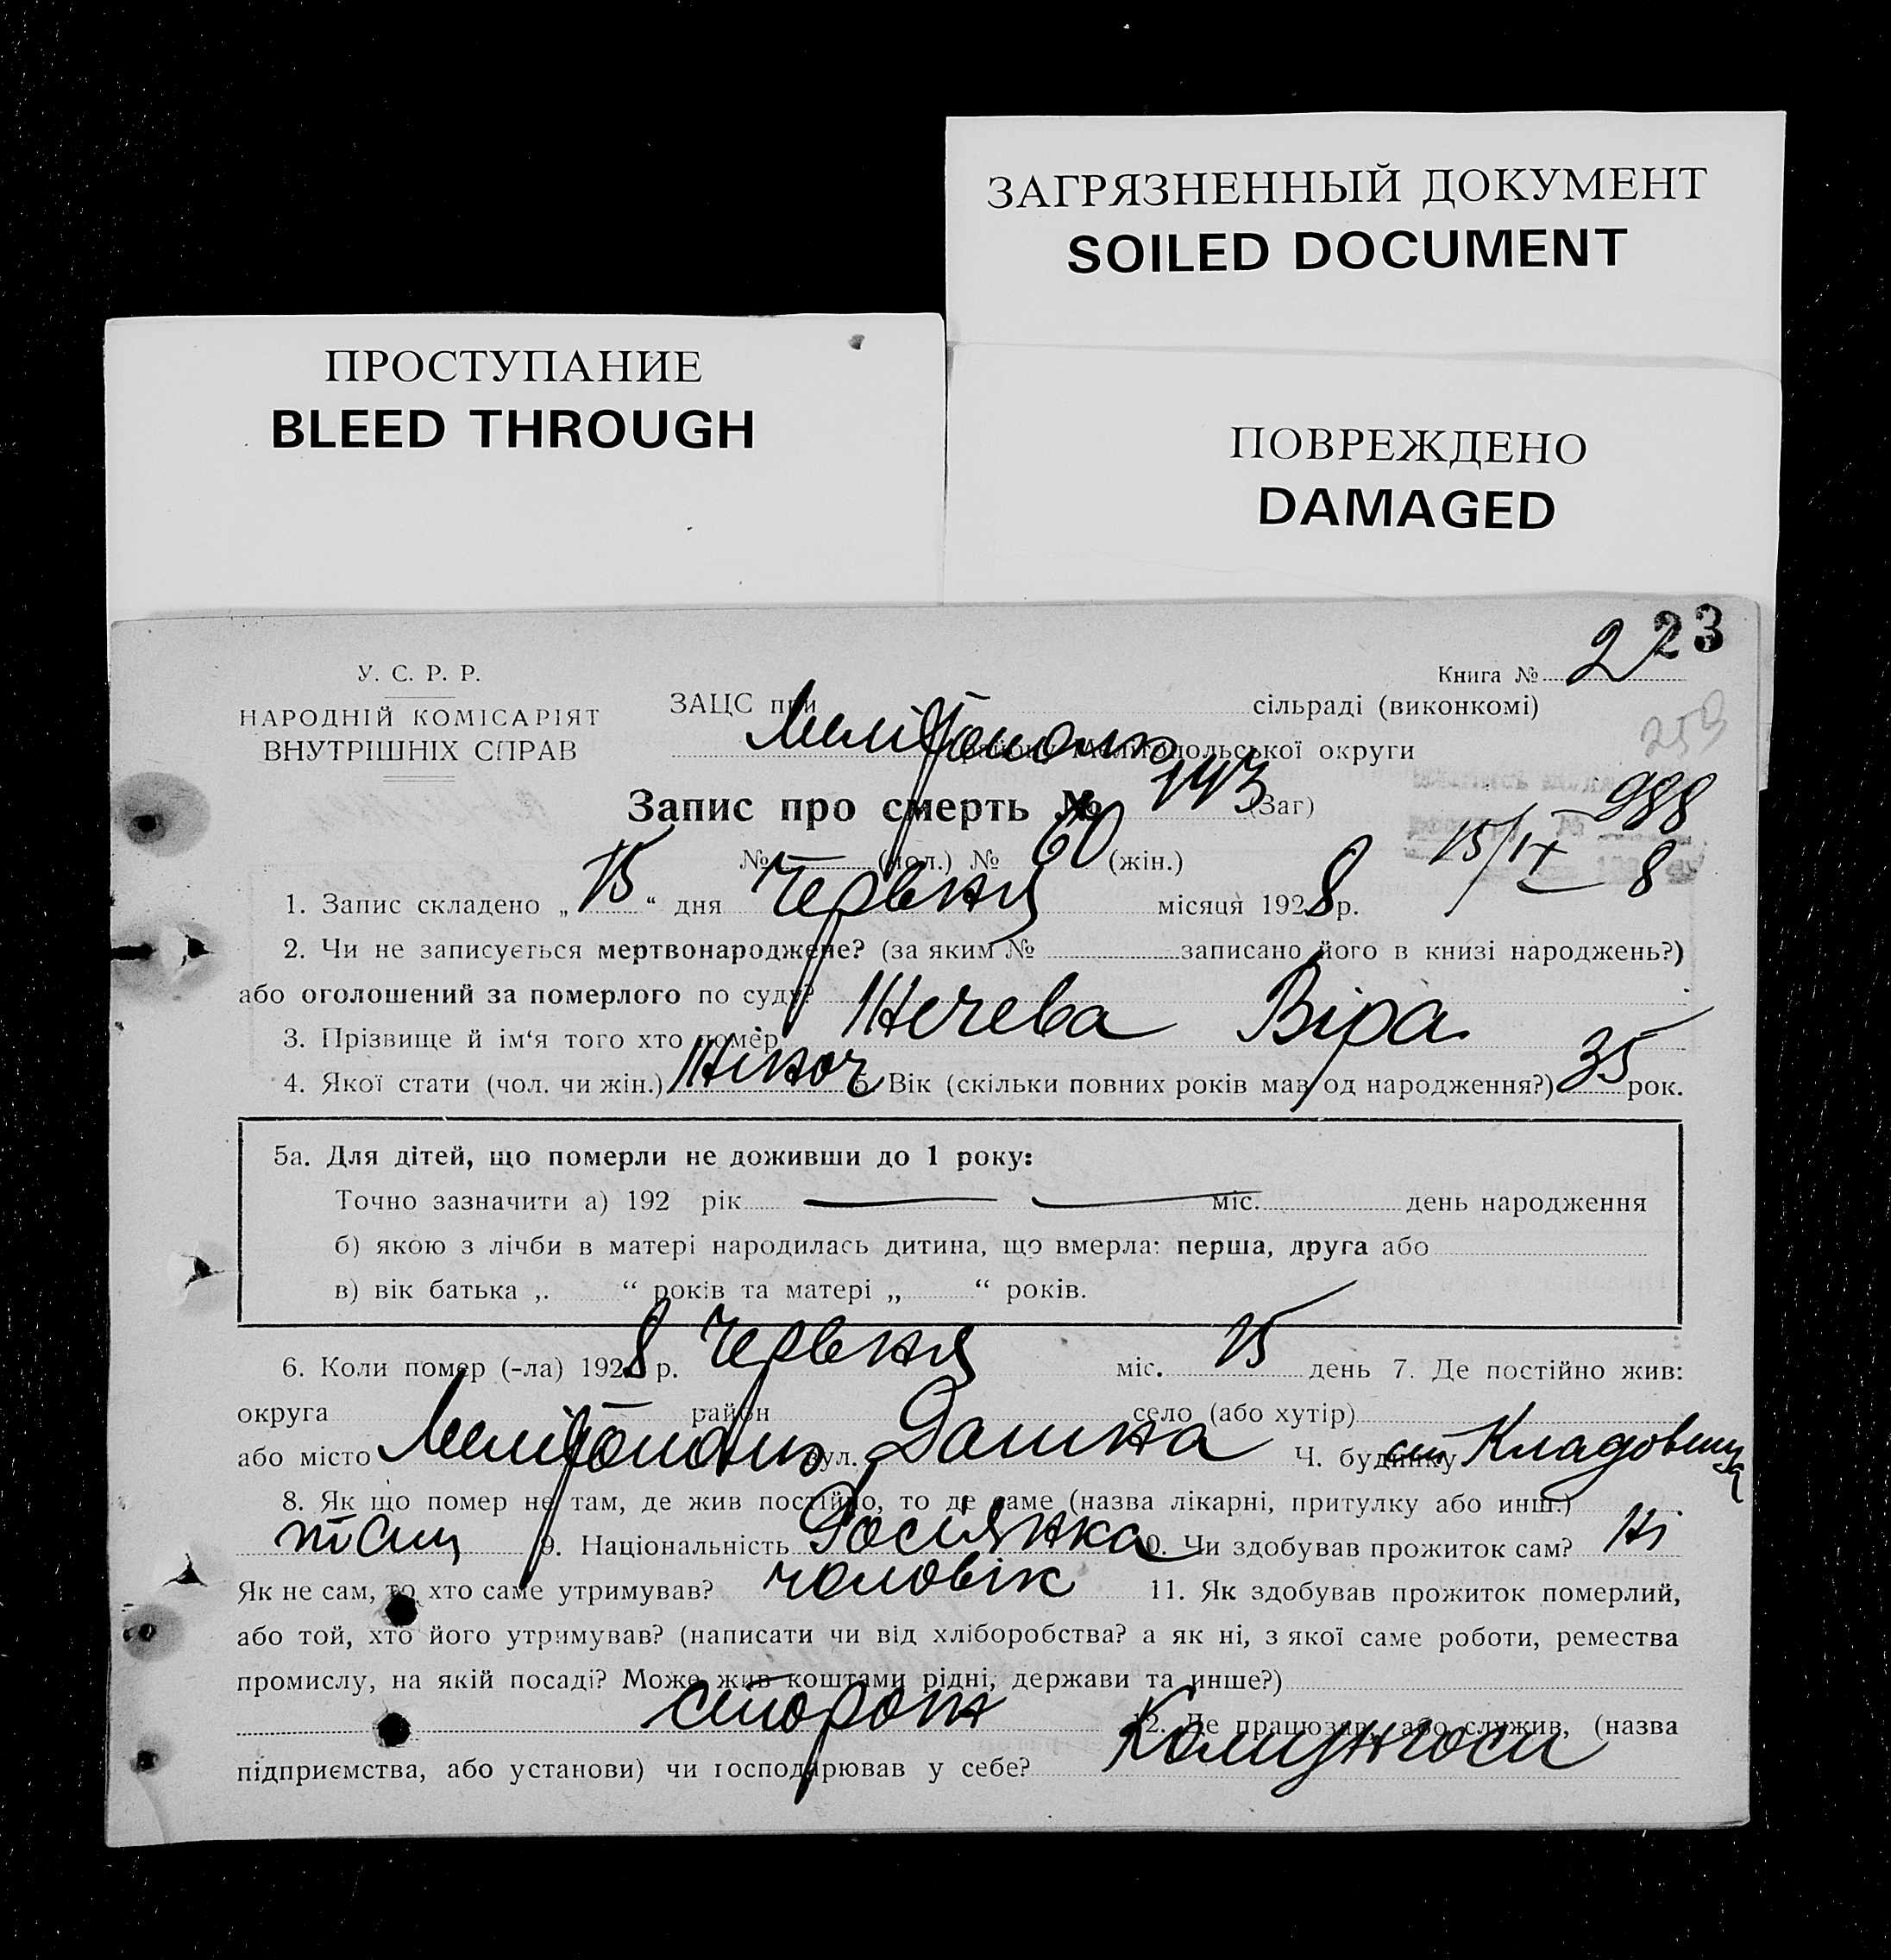 ЗАГРЯЗНЕННЫЙ ДОКУМЕНТ
SOILED DOCUMENT
ПРОСТУПАНИЕ
BLEED THROUGH
ПОВРЕЖДЕНО
DAMAGED
23
У. С. Р. Р.
НАРОДНІЙ КОМІСАРІЯТ
ВНУТРІШНІХ СПРАВ
Книга № 2
ЗАЦС при сільраді (виконкомі)
Меліτополь району Мелітопольської округи
259
Запис про смерть № 143 (Заг)
988
№ — (чол.) № 60 (жін.)
15/IX 8
1. Запис складено „ 15 “ дня Червня місяця 1928 р.
2. Чи не записується мертвонароджене? (за яким № записано його в книзі народжень?)
або оголошений за померлого по суду?
3. Прізвище й ім‘я того хто помер Віра
4. Якої стати (чол. чи жін.) Жіноч 5. Вік (скільки повних років мав од народження?) 35 рок.
5а. Для дітей, що померли не доживши до 1 року:
Точно зазначити а) 192 рік — — міс. день народження
б) якою з лічби в матері народилась дитина, що вмерла: перша, друга або
в) вік батька „ “ років та матері „ “ років.
6. Коли помер (-ла) 1928 р. Червня міс. 15 день 7. Де постійно жив:
округа район село (або хутір)
або місто Мелітополь вул. Ч. будинку Кладовища
8. Як що помер не там, де жив постійно, то де саме (назва лікарні, притулку або инш.)
там 9. Національність Росіянка 10. Чи здобував прожиток сам? Ні
Як не сам, то хто саме утримував? чоловік 11. Як здобував прожиток померлий,
або той, хто його утримував? (написати чи від хліборобства? а як ні, з якої саме роботи, ремества
промислу, на якій посаді? Може жив коштами рідні, держави та инше?)
сторож 12. Де працював, або служив, (назва
підприємства, або установи) чи господарював у себе? Комунгосп